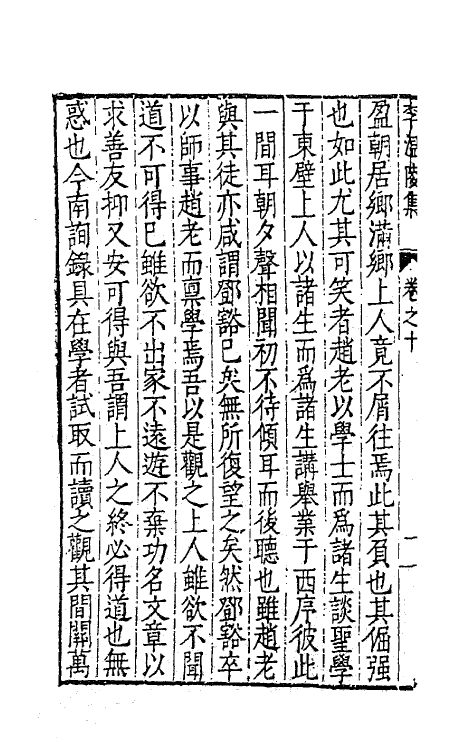 李溫陵集 卷之十 二
盈朝居鄉滿鄉上人竟不屑往焉此其負也其倔强
也如此尤其可笑者趙老以學士而爲諸生談聖學
于東壁上人以諸生而爲諸生講舉業于西序彼此
一間耳朝夕聲相聞初不待傾耳而後聽也雖趙老
與其徒亦咸謂鄧豁已矣無所復望之矣然鄧豁卒
以師事趙老而禀學焉吾以是觀之上人雖欲不聞
道不可得已雖欲不出家不遠遊不棄功名文章以
求善友抑又安可得與吾謂上人之終必得道也無
惑也今南詢錄具在學者試取而讀之觀其間關萬